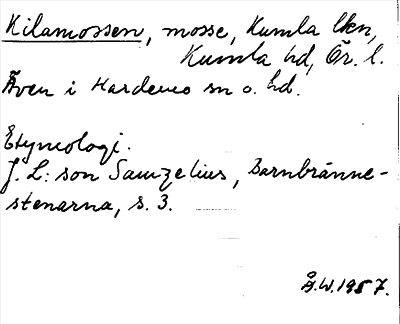 Kilamossen, mosse, Kumla lkn,
Kumla hd, Ör. l.
Även i Hardemo sn o. hd.
Etymologi.
J. L:son Samzelius, Barnbränne-
stenarna, s. 3.
Å.W.1957.